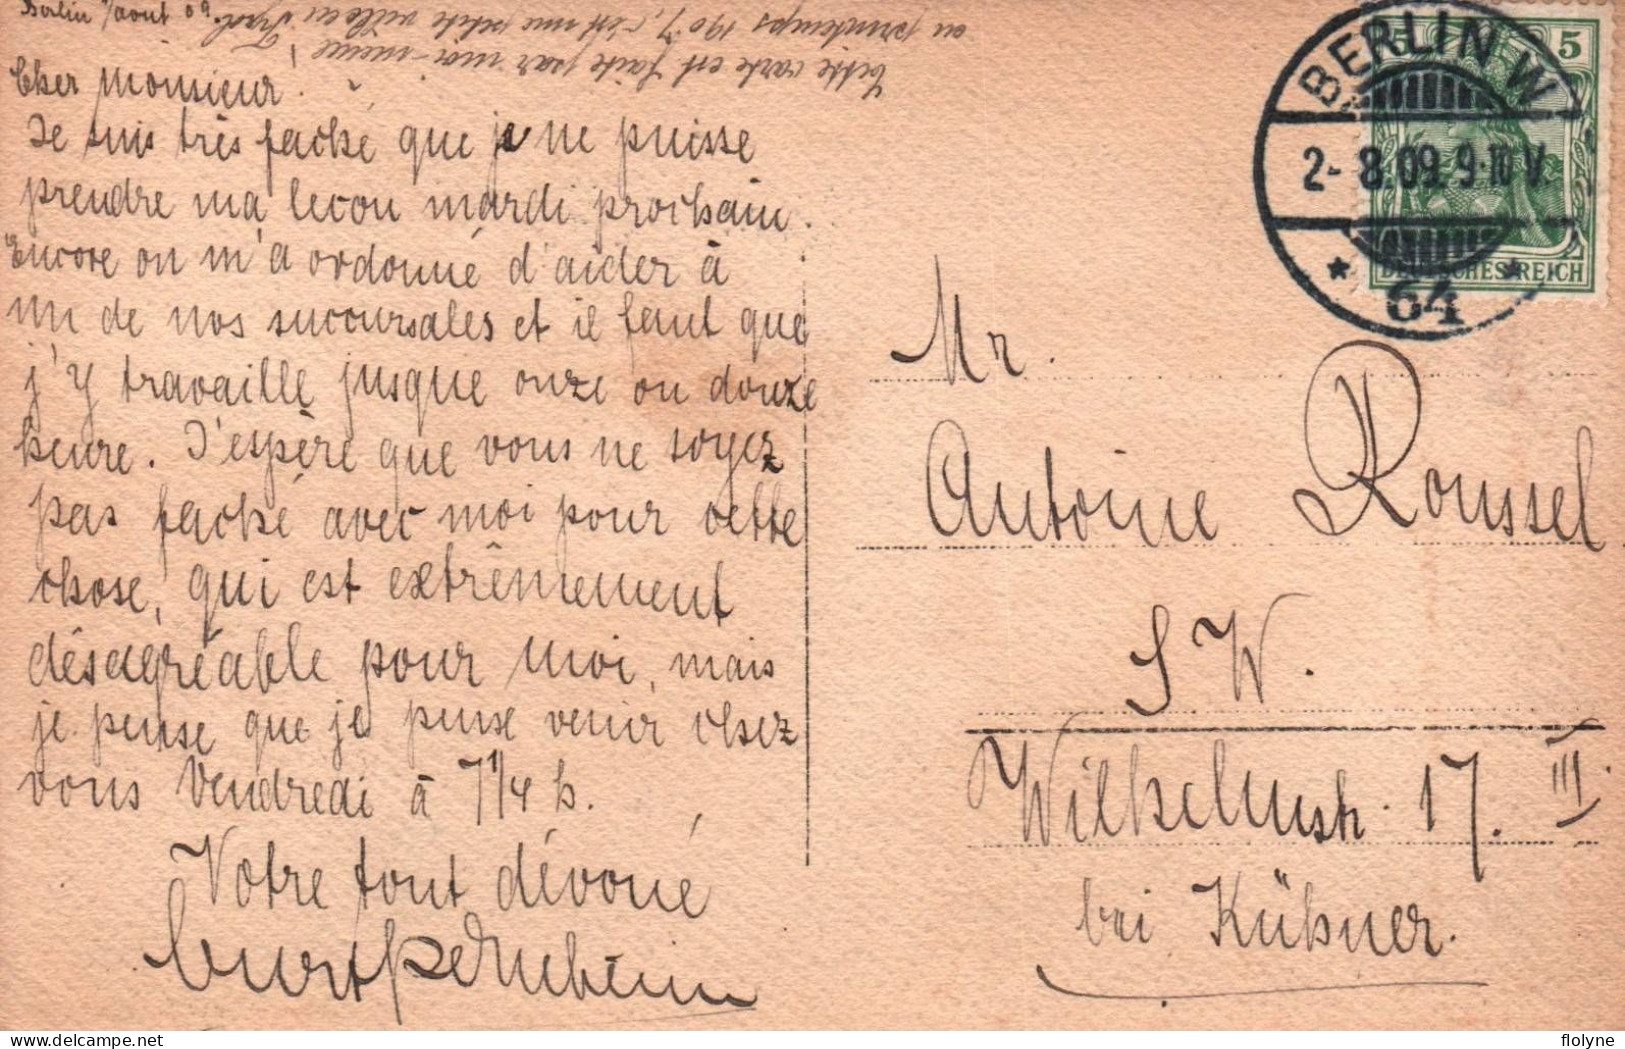 Berlin 1/aout 09.
Cette carte est faite par moi-même
au printemps 1907, c'est une petite ville en Tyrol.
Cher monsieur!
Je suis très faché que je ne puisse
prendre ma lecon mardi prochain.
Encore on m'a ordonné d'aider à
un de nos succursales et il faut que
j'y travaille jusque onze ou douze
heure. J'espère que vous ne soyez
pas faché avec moi pour cette
chose, qui est extrêmement
désagréable pour moi, mais
je pense que je puisse venir chez
vous Vendredi à 7 1/4 h.
Votre tout dévoué
BERLIN W
2-8.09.9-10V.
* 64 *
5 5
DEUTSCHES REICH
Mr.
Antoine Roussel
S W.
Wilhelmstr. 17. III.
bei Kühner.
flolyne